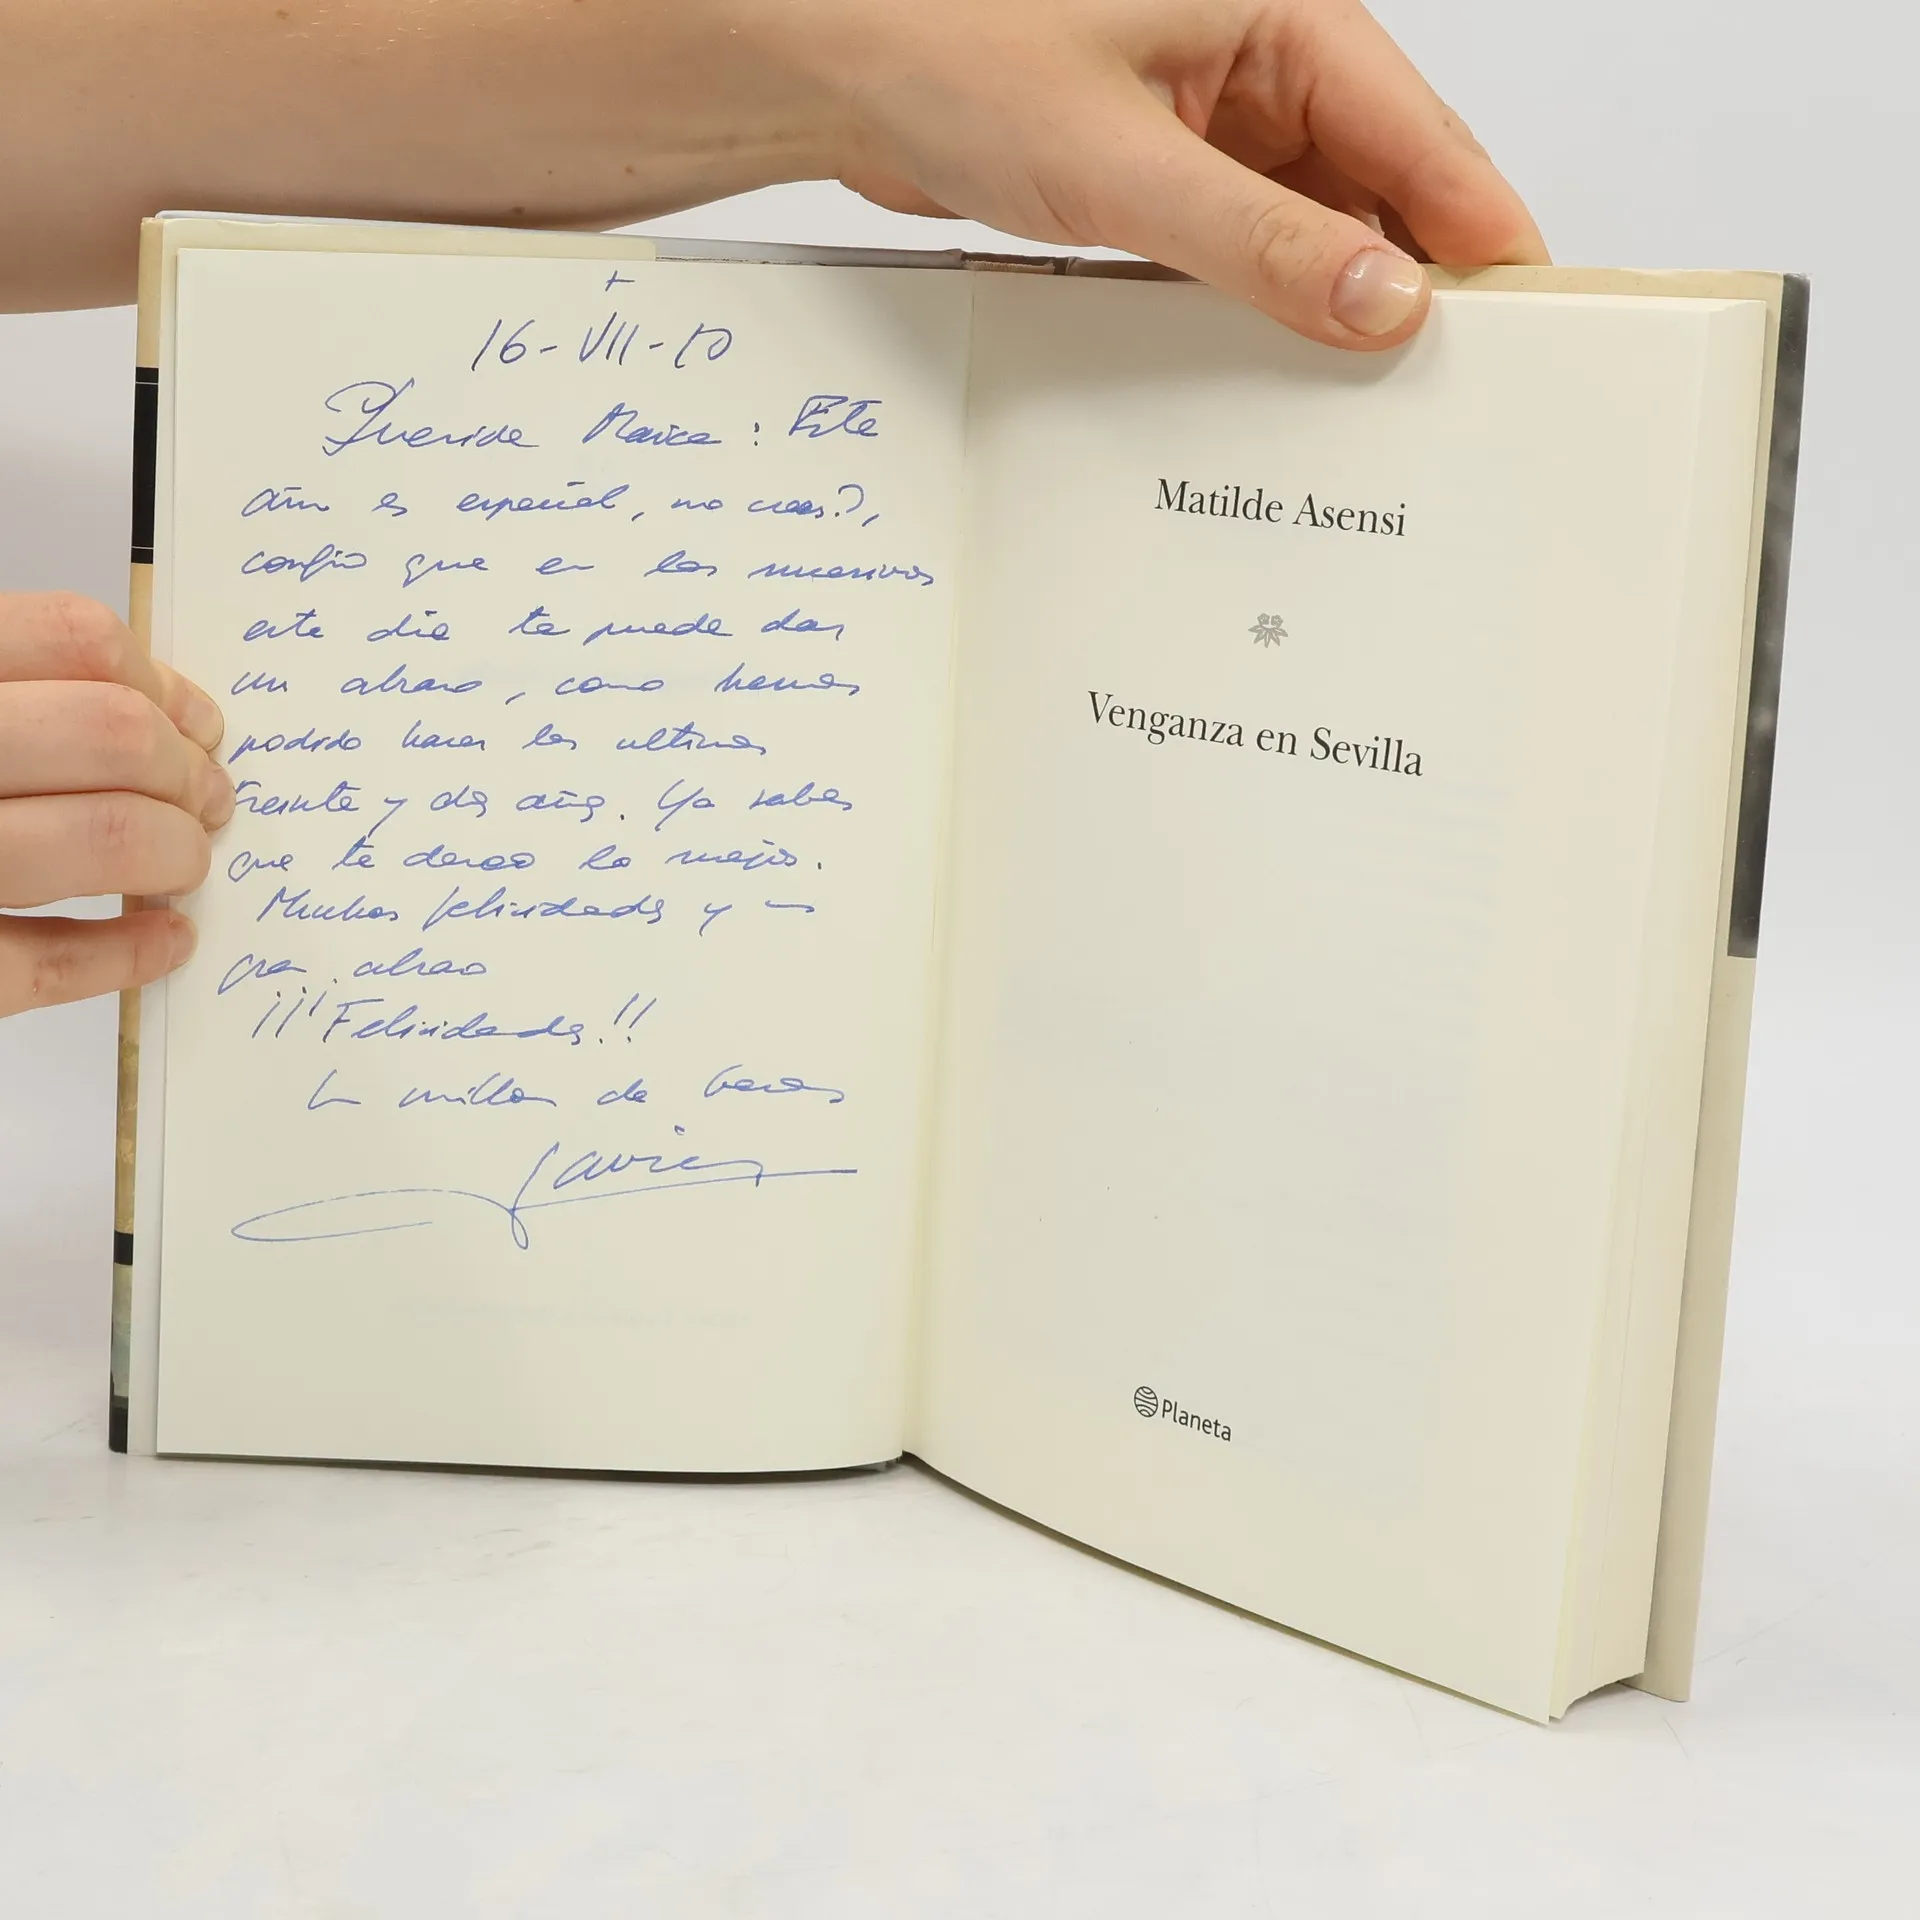 +
16-VII-10
Querida Marisa: Este
año es especial, no crees?,
confío que en los sucesivos
este día te puede dar
un abrazo, como hemos
podido hacer los ultimos
treinta y dos años. Ya sabes
que te deseo lo mejor.
Muchas felicidades y un
gran abrazo
¡¡¡Felicidades!!
Un millon de besos
Javier
Matilde Asensi
Venganza en Sevilla
Planeta